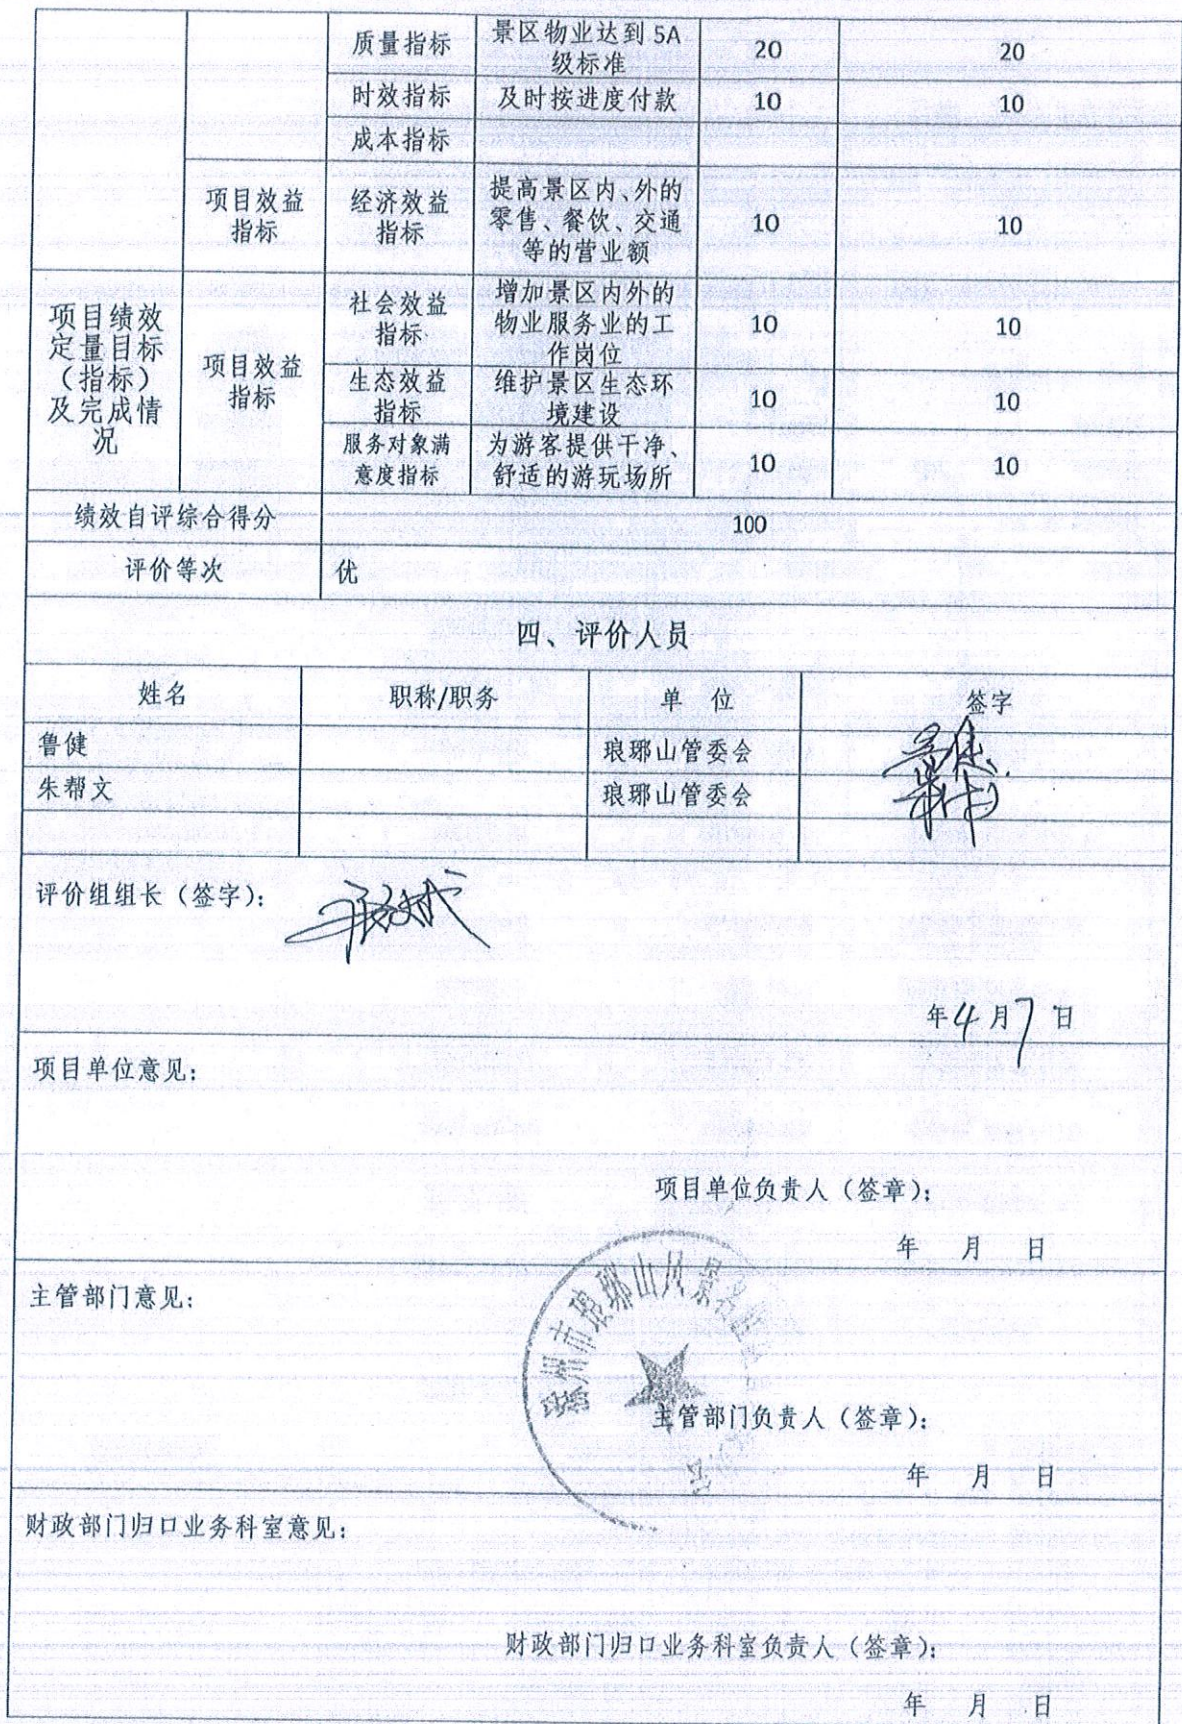 质量指标
景区物业达到 5A
级标准
20
20
时效指标
及时按进度付款
10
10
成本指标
项目效益
指标
经济效益
指标
提高景区内、外的
零售、餐饮、交通
等的营业额
10
10
项目绩效
定量目标
（指标）
及完成情
况
项目效益
指标
社会效益
指标
增加景区内外的
物业服务业的工
作岗位
10
10
生态效益
指标
维护景区生态环
境建设
10
10
服务对象满
意度指标
为游客提供干净、
舒适的游玩场所
10
10
绩效自评综合得分
100
评价等次
优
四、评价人员
姓名
职称/职务
单 位
签字
鲁健
琅琊山管委会
朱帮文
琅琊山管委会
评价组组长（签字）：
年4月7日
项目单位意见：
项目单位负责人（签章）：
年 月 日
主管部门意见：
滁州市琅琊山风景名
主管部门负责人（签章）：
年 月 日
财政部门归口业务科室意见：
财政部门归口业务科室负责人（签章）：
年 月 日